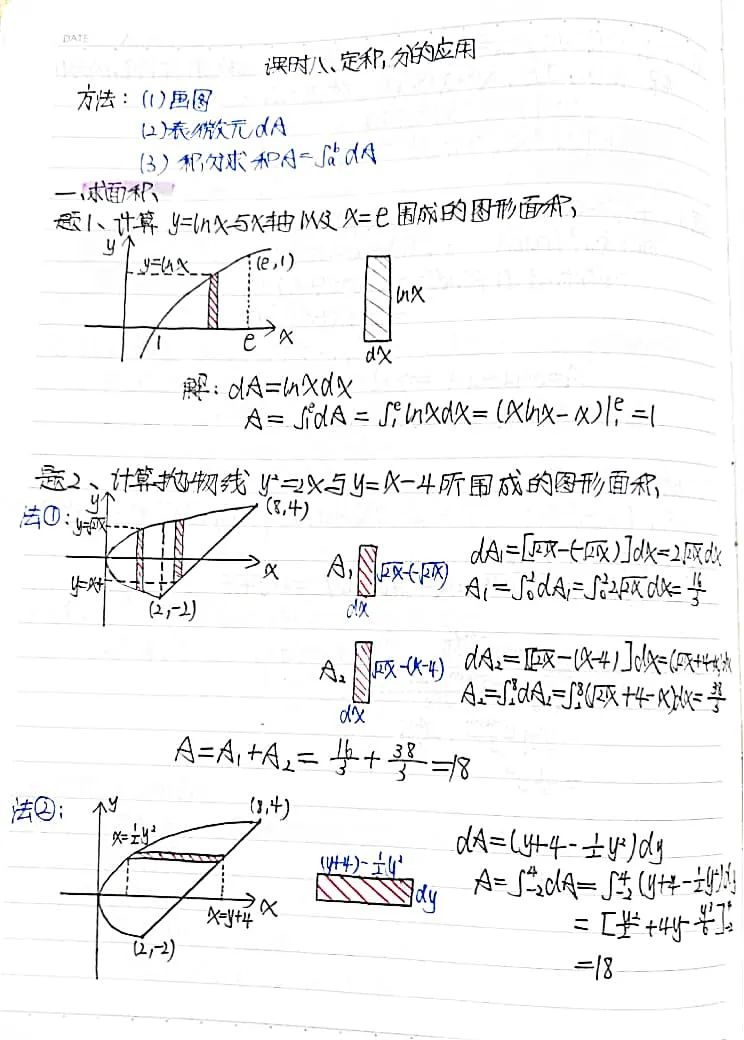 DATE
课时八、定积分的应用
方法：(1)画图
(2)表微元dA
(3)积分求和A=∫ₐᵇdA
一、求面积
题1、计算 y=lnx与x轴以及x=e围成的图形面积
y
y=lnx
(e,1)
1
e
x
lnx
dx
解：dA=lnxdx
A=∫₁ᵉdA=∫₁ᵉlnxdx=(xlnx-x)|₁ᵉ=1
题2、计算抛物线 y²=2x与y=x-4所围成的图形面积
法①：
y
y=√2x
(8,4)
x
(2,-2)
A₁
√2x-(-√2x)
dx
dA₁=[√2x-(-√2x)]dx=2√2xdx
A₁=∫₀²dA₁=∫₀²2√2xdx=16/3
A₂
√2x-(x-4)
dx
dA₂=[√2x-(x-4)]dx=(√2x+4-x)dx
A₂=∫₂⁸dA₂=∫₂⁸(√2x+4-x)dx=38/3
A=A₁+A₂=16/3+38/3=18
法②：
y
(8,4)
x=½y²
x=y+4
x
(2,-2)
(y+4)-½y²
dy
dA=(y+4-½y²)dy
A=∫₋₂⁴dA=∫₋₂⁴(y+4-½y²)dy
=[y²/2+4y-y³/6]₋₂⁴
=18